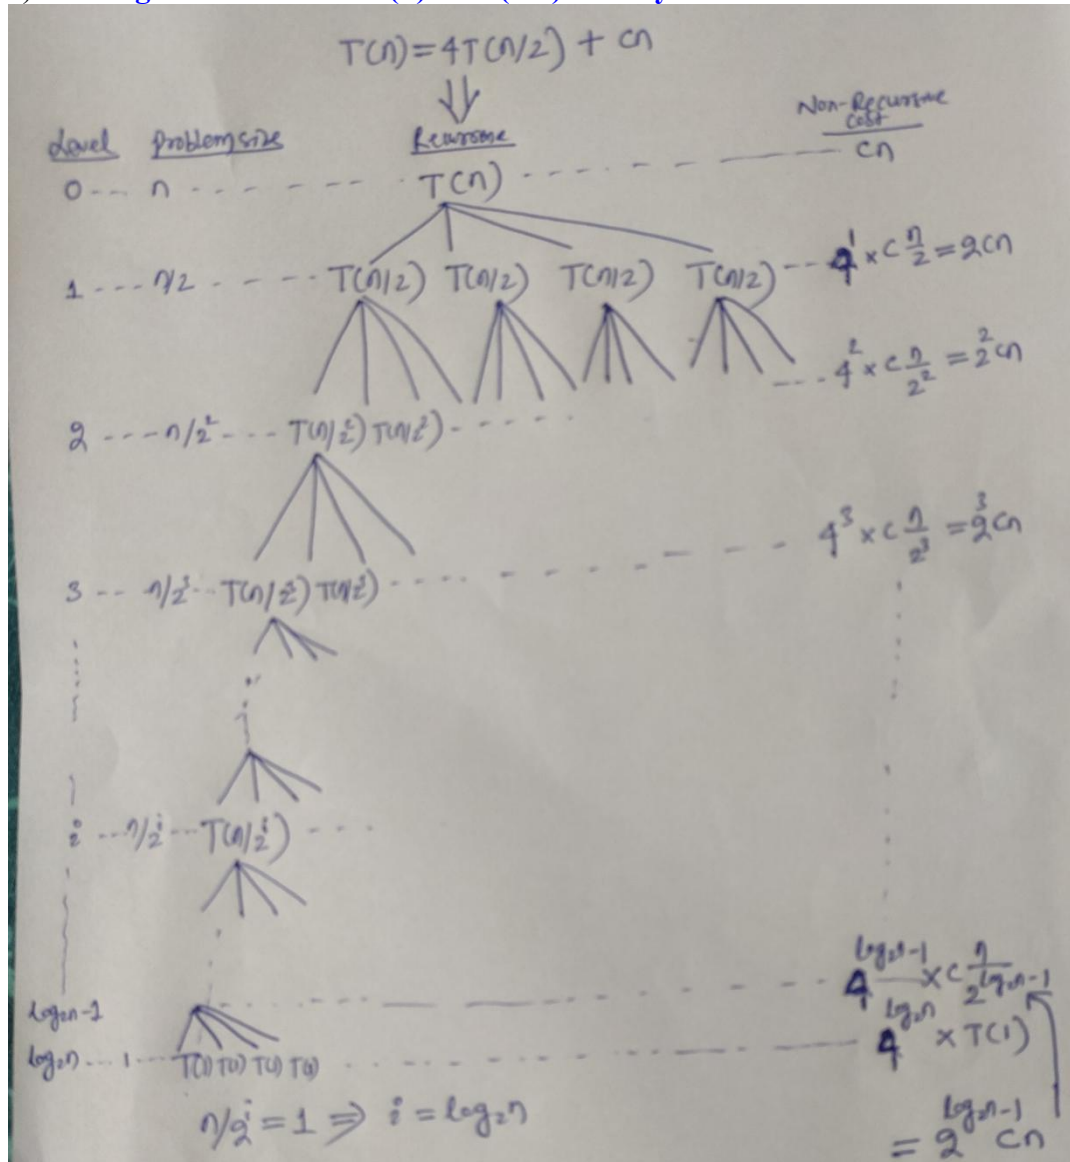 T(n)=4T(n/2) + cn
⇓
Level Problem size Recursive Non-Recursive cost
0 --- n - - - - - - T(n) - - - - - - cn
1 --- n/2 - - - - T(n/2) T(n/2) T(n/2) T(n/2) --- 4^1 × c n/2 = 2cn
--- 4^2 × c n/2^2 = 2^2 cn
2 --- n/2^2 --- T(n/2^2) T(n/2^2) - - - - -
3 -- n/2^3 -- T(n/2^3) T(n/2^3) - - - - - - - 4^3 × c n/2^3 = 2^3 cn
i --- n/2^i --- T(n/2^i) - - -
log₂n-1 - - - - - - 4^(log₂n-1) × c n/2^(log₂n-1)
log₂n --- 1 --- T(1) T(1) T(1) T(1) - - - - - - 4^(log₂n) × T(1)
n/2^i = 1 ⇒ i = log₂n
= 2^(log₂n-1) cn